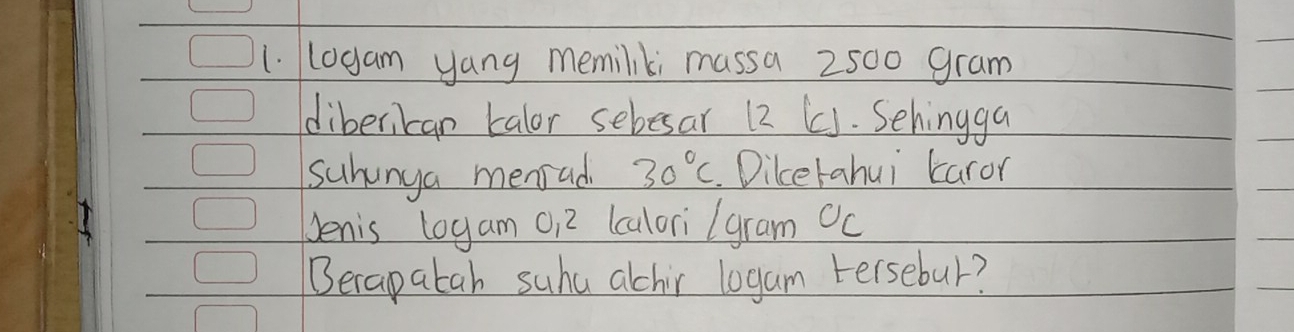 1. Logam yang memiliki massa 2500 gram
diberikan kalor sebesar 12 kJ. Sehingga
suhunya menjadi 30°C. Diketahui karor
Jenis logam 0,2 kalori/gram °C
Berapakah suhu akhir logam tersebut?